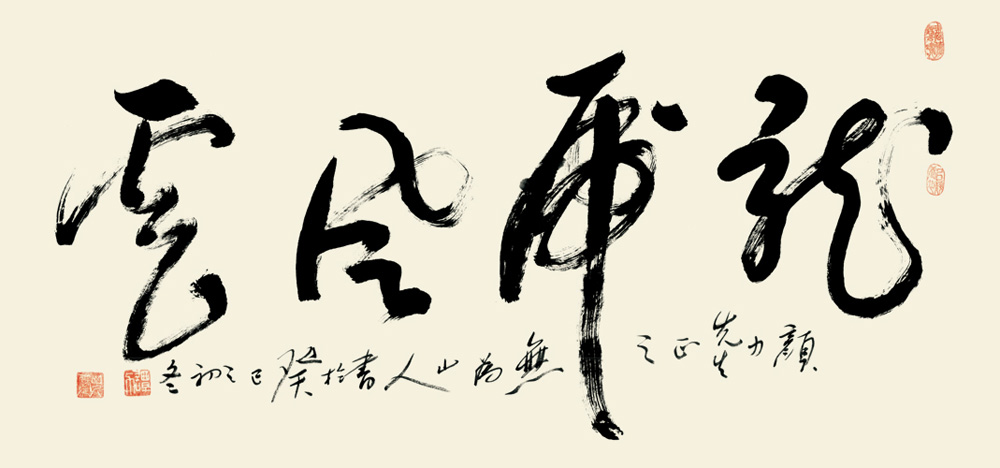 龍虎風雲
顏力先生正之
無為山人書於癸巳之初冬